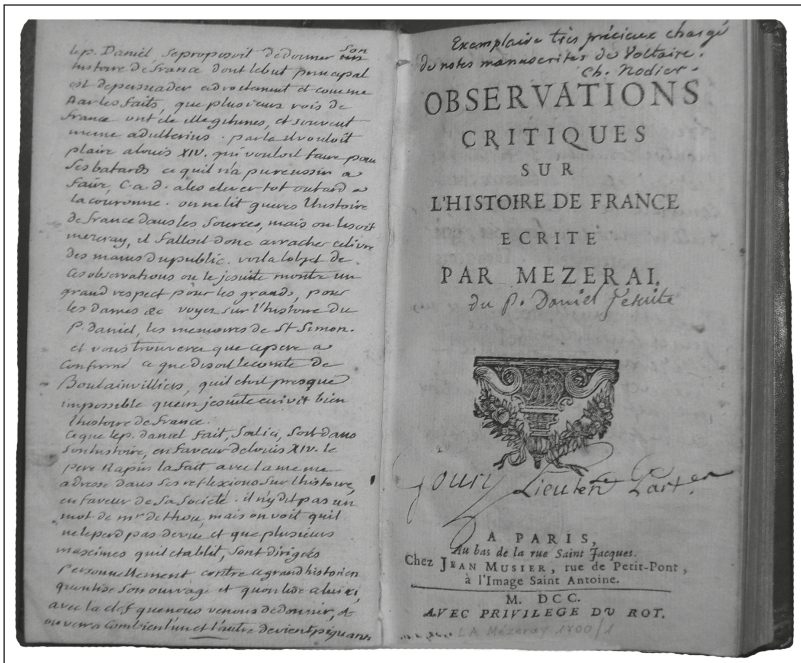 le p. Daniel se proposoit de donner son
histoire de france dont le but principal
est de persuader adroitement et comme
par les faits, que plusieurs rois de
france ont ete illegitimes, et souvent
meme adulterins. par la il vouloit
plaire a louis XIV. qui vouloit faire pour
ses batards ce qu'il n'a pu reussir a
faire, c. a. d. a les elever tot ou tard a
la couronne. on ne lit gueres l'histoire
de france dans les sources, mais on lisoit
mezeray, il falloit donc arracher ce livre
des mains du public. voila l'objet de
ces observations ou le jesuite montre un
grand respect pour les grands, pour
les dames &c voyez sur l'histoire du
P daniel, les memoires de St Simon.
et vous trouverez que ce pere a
confirmé ce que disoit le comte de
Boulainvilliers, qu'il etoit presque
impossible qu'un jesuite ecrivit bien
l'histoire de france.
ce que le p. daniel fait, soit ici, soit dans
son histoire, en faveur de louis XIV. le
pere Rapin l'a fait avec la meme
adresse dans ses reflexions sur l'histoire,
en faveur de sa societé. il n'y dit pas un
mot de mr de thou, mais on voit qu'il
ne le perd pas de vue et que plusieurs
maximes qu'il etablit, sont dirigées
personnellement contre ce grand historien
qu'on lise son ouvrage et qu'on lise celui ci,
avec la clef que nous venons de donner, &
on verra combien l'un et l'autre devient piquant
Exemplaire très précieux chargé
de notes manuscrites de Voltaire.
Ch. Nodier.
OBSERVATIONS
CRITIQUES
SUR
L'HISTOIRE DE FRANCE
ECRITE
PAR MEZERAI.
du P. Daniel Jesuite
A PARIS,
Au bas de la rue Saint Jacques.
Chez JEAN MUSIER, rue de Petit-Pont,
à l'Image Saint Antoine.
M. DCC.
AVEC PRIVILEGE DU ROI.
LA Mézeray 1700/1